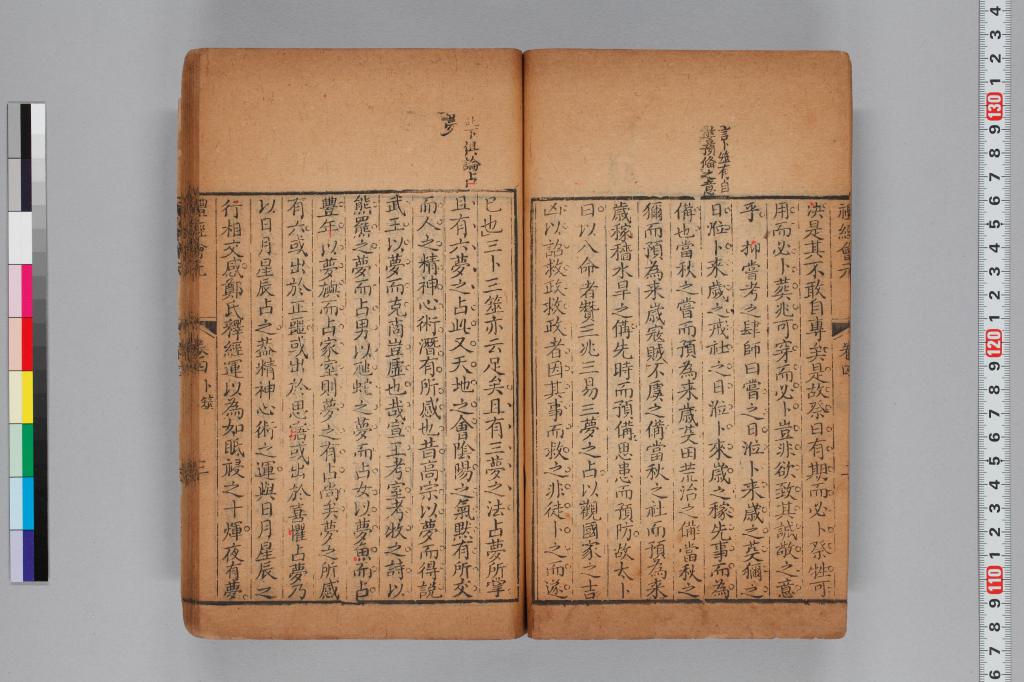 禮經會元
卷四
二
言卜筮有自
能預偹之意
決是其不敢自專矣是故祭日有期而必卜祭牲可
用而必卜葬兆可穿而必卜豈非欲致其誠敬之意
乎 抑嘗考之肆師曰嘗之日涖卜来歲之芟獮之
日涖卜来歲之戒社之日涖卜來歲之稼先事而為
偹也當秋之嘗而預為来歲芟田荒治之偹當秋之
獮而預為来歲寇賊不虞之偹當秋之社而預為来
歲稼穡水旱之偹先時而預偹思患而預防故太卜
曰以八命者贊三兆三易三夢之占以觀國家之吉
凶以詔救政救政者因其事而救之非徒卜之而遂
此下俱論占
夢
已也三卜三筮亦云足矣且有三夢之法占夢所掌
且有六夢之占此又天地之會陰陽之氣黙有所交
而人之精神心術潛有所感也昔高宗以夢而得說
武王以夢而克商豈虛也哉宣王考室考牧之詩以
熊羆之夢而占男以虺蛇之夢而占女以夢魚而占
豐年以夢旟而占家室則夢之有占尚矣夢之所感
有六或出於正噩或出於思寤或出於喜懼占夢乃
以日月星辰占之葢精神心術之運與日月星辰之
行相交感鄭氏釋經運以為如眡祲之十煇夜有夢
禮經會元
卷四 卜筮
三